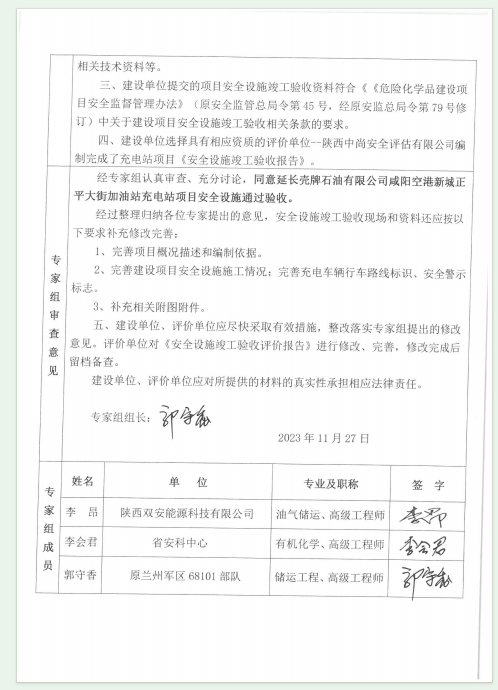 相关技术资料等。
三、建设单位提交的项目安全设施竣工验收资料符合《《危险化学品建设项
目安全监督管理办法》（原安全监管总局令第 45 号，经原安监总局令第 79 号修
订）中关于建设项目安全设施竣工验收相关条款的要求。
四、建设单位选择具有相应资质的评价单位--陕西中尚安全评估有限公司编
制完成了充电站项目《安全设施竣工验收报告》。
经专家组认真审查、充分讨论，同意延长壳牌石油有限公司咸阳空港新城正
平大街加油站充电站项目安全设施通过验收。
经过整理归纳各位专家提出的意见，安全设施竣工验收现场和资料还应按以
下要求补充修改完善：
1、完善项目概况描述和编制依据。
2、完善建设项目安全设施施工情况；完善充电车辆行车路线标识、安全警示
标志。
3、补充相关附图附件。
五、建设单位、评价单位应尽快采取有效措施，整改落实专家组提出的修改
意见。评价单位对《安全设施竣工验收评价报告》进行修改、完善，修改完成后
留档备查。
建设单位、评价单位应对所提供的材料的真实性承担相应法律责任。
专家组组长：郭守香
2023 年 11 月 27 日
专家组审查意见
专家组成员
姓名 单 位 专业及职称 签 字
李 昂 陕西双安能源科技有限公司 油气储运、高级工程师 李昂
李会君 省安科中心 有机化学、高级工程师 李会君
郭守香 原兰州军区 68101 部队 储运工程、高级工程师 郭守香